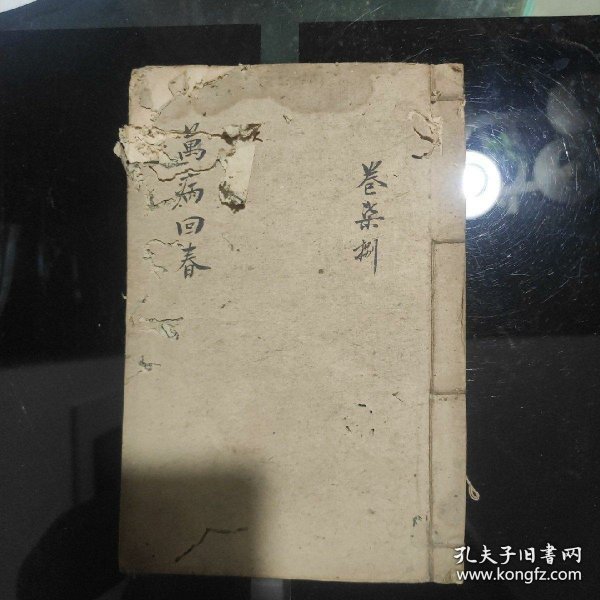 卷柒捌
萬病回春
孔夫子旧書网
www.kongfz.com